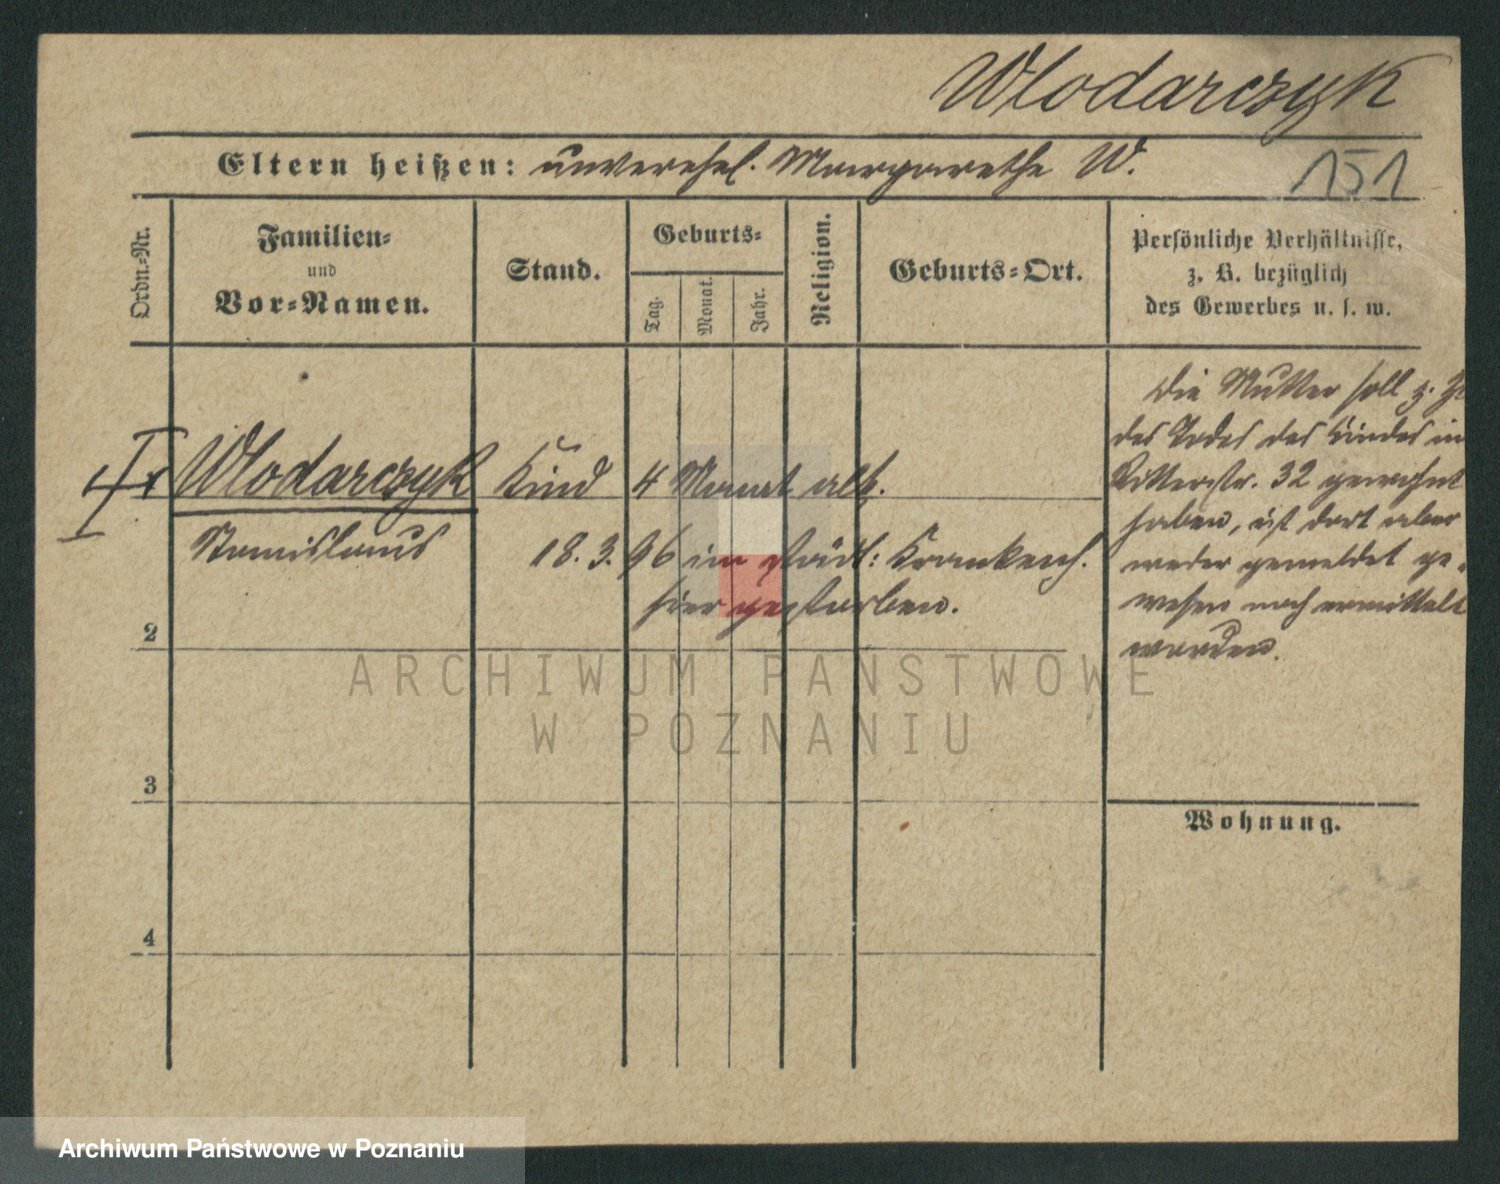 Wlodarczyk
Eltern heißen: unverehel. Margarethe W.
151
Ordn.-Nr.
Familien-
und
Vor-Namen.
Stand.
Geburts-
Tag.
Monat.
Jahr.
Religion.
Geburts-Ort.
Persönliche Verhältnisse,
z. B. bezüglich
des Gewerbes u. s. w.
Wlodarczyk Kind 4 Monat alt.
Stanislaus 18. 3. 96 im städt: Krankenh.
hier gestorben.
Die Mutter soll z. Zt
des Todes des Kindes in
Ritterstr. 32 gewohnt
haben, ist dort aber
weder gemeldet ge-
wesen noch ermittelt
worden.
2
3
4
Wohnung.
ARCHIWUM PAŃSTWOWE
W POZNANIU
Archiwum Państwowe w Poznaniu